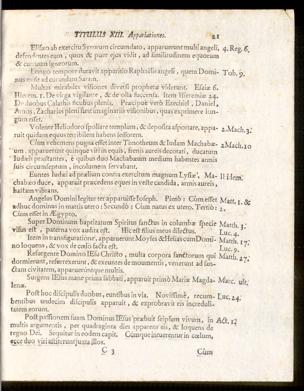 TITULUS XIII. Apparitiones. 21
Elisæo ab exercitu Syrorum circundato, apparuerunt multi angeli, 4. Reg. 6.
defendentes eum, quos & puer ejus vidit, ad similitudinem equorum
& curruum igneorum.
Longo tempore duravit apparitio Raphaëlis angeli, quem Domi- Tob. 9.
nus misit ad curandum Saram.
Multas mirabiles visiones diversi prophetæ viderunt. Esaiæ 6.
Hierem. 1. De virga vigilante, & de olla succensa. Item Hieremiæ 24.
De duobus Calathis ficubus plenis. Præcipuè verò Ezechiel, Daniel,
Amos, Zacharias pleni sunt imaginariis visionibus, quas exprimere lon-
gum esset.
Volente Heliodoro spoliare templum, & deposita asportare, appa- 2. Mach. 3.
ruit quidam equum terribilem habens sessorem.
Cùm vehemens pugna esset inter Timotheum & Iudam Machabæ- 2. Mach. 10
um, apparuerunt quinque viri in equis, frenis aureis decorati, ducatum
Iudæis præstantes, è quibus duo Machabæum medium habentes armis
suis circumseptum, incolumem servabant.
Euntes Iudæi ad prælium contra exercitum magnum Lysiæ, Ma- Ibidem.
chabæo duce, apparuit præcedens eques in veste candida, armis aureis,
hastam vibrans.
Angelus Domini legitur ter apparuisse Ioseph. Primò: Cùm esset Matt. 1. &
adhuc dominus in matris utero: Secundò: Cùm natus ex utero, Tertiò: 2.
Cùm esset in Ægypto.
Super Dominum baptizatum Spiritus sanctus in columbæ specie Matth. 3.
visus est, paterna vox audita est. Hic est filius meus dilectus. Luc. 4.
Item in transfiguratione, apparuerunt Moyses & Helias cum Domi- Matth. 17.
no loquens, & vox de cœlo facta est. Luc. 9.
Resurgente Domino Iesu Christo, multa corpora sanctorum qui Matth. 27.
dormierunt, resurrexerunt, & exeuntes de monumentis, venerunt ad san-
ctam civitatem, apparueruntque multis.
Surgens Iesus mane prima sabbati, apparuit primò Mariæ Magda- Marc. ult.
lenæ.
Post hoc discipulis duobus, euntibus in via. Novissimè, recum- Luc. 24.
bentibus undecim discipulis apparuit, & exprobravit eis incredulita-
tem eorum.
Post passionem suam Dominus Iesus præbuit seipsum vivum, in Act. 1.
multis argumentis, per quadraginta dies apparens eis, & loquens de
regno Dei. Sequitur in eodem capit. Cùmque intuerentur in cœlum,
ecce duo viri astiterunt juxta illos.
C 3 Cùm